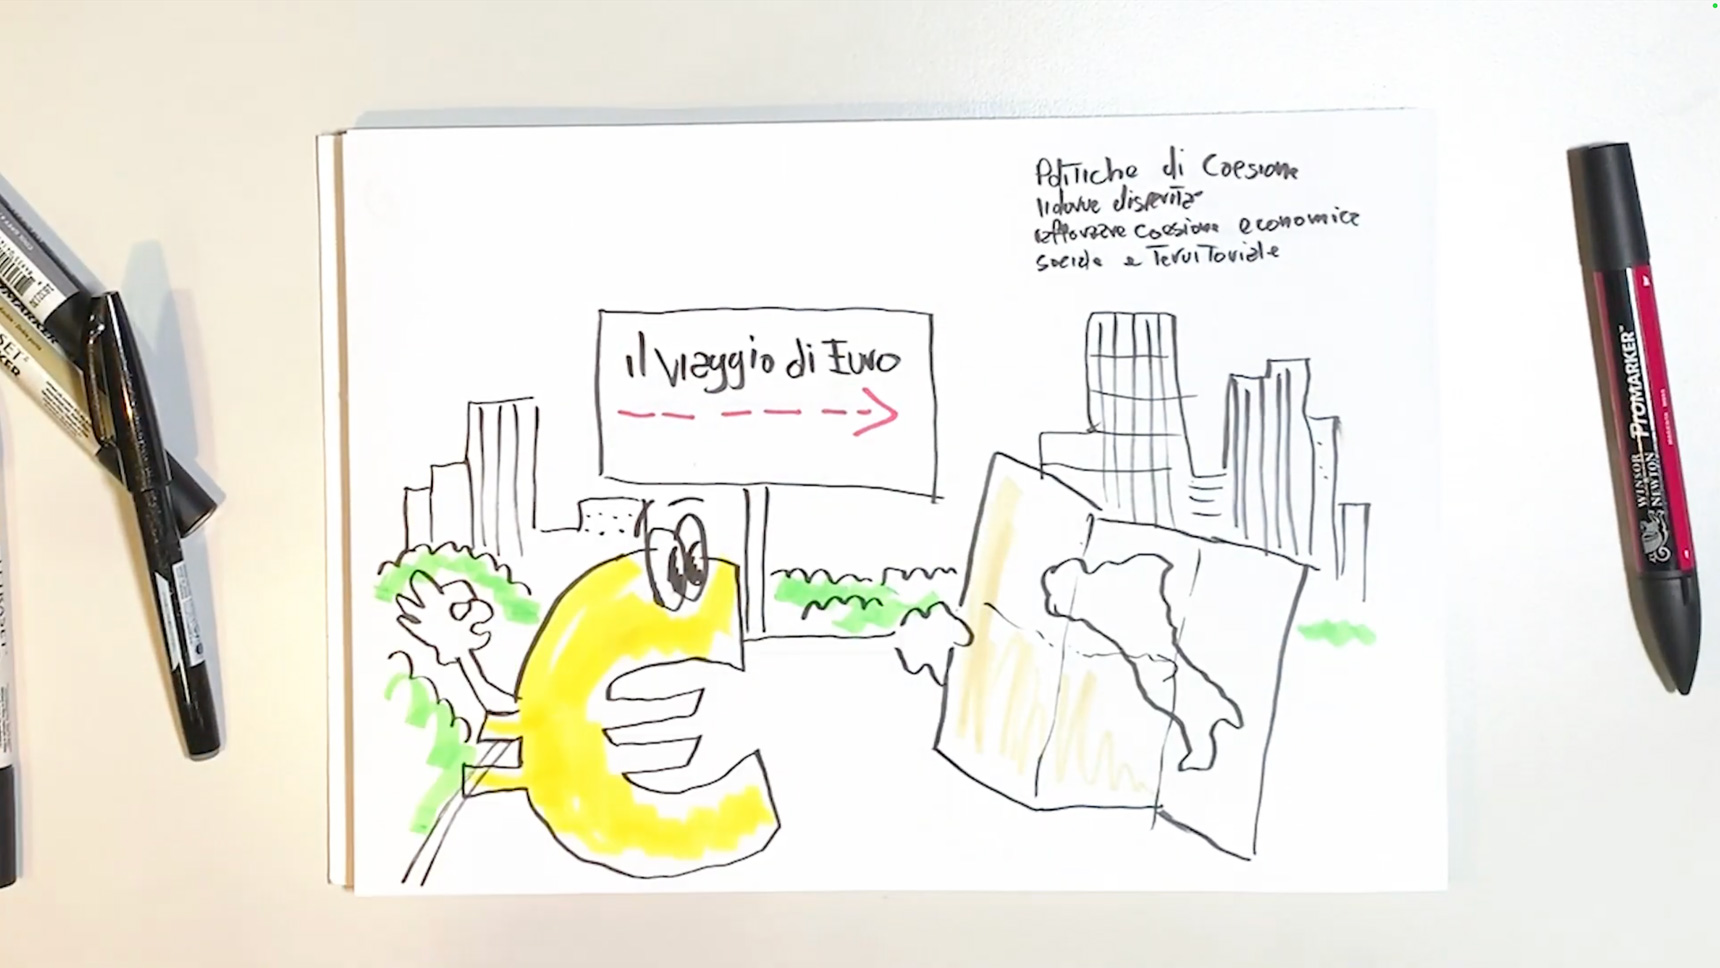 Politiche di Coesione
ridurre disparità
rafforzare coesione economica
sociale e territoriale
il viaggio di Euro
PROMARKER™
WINSOR & NEWTON